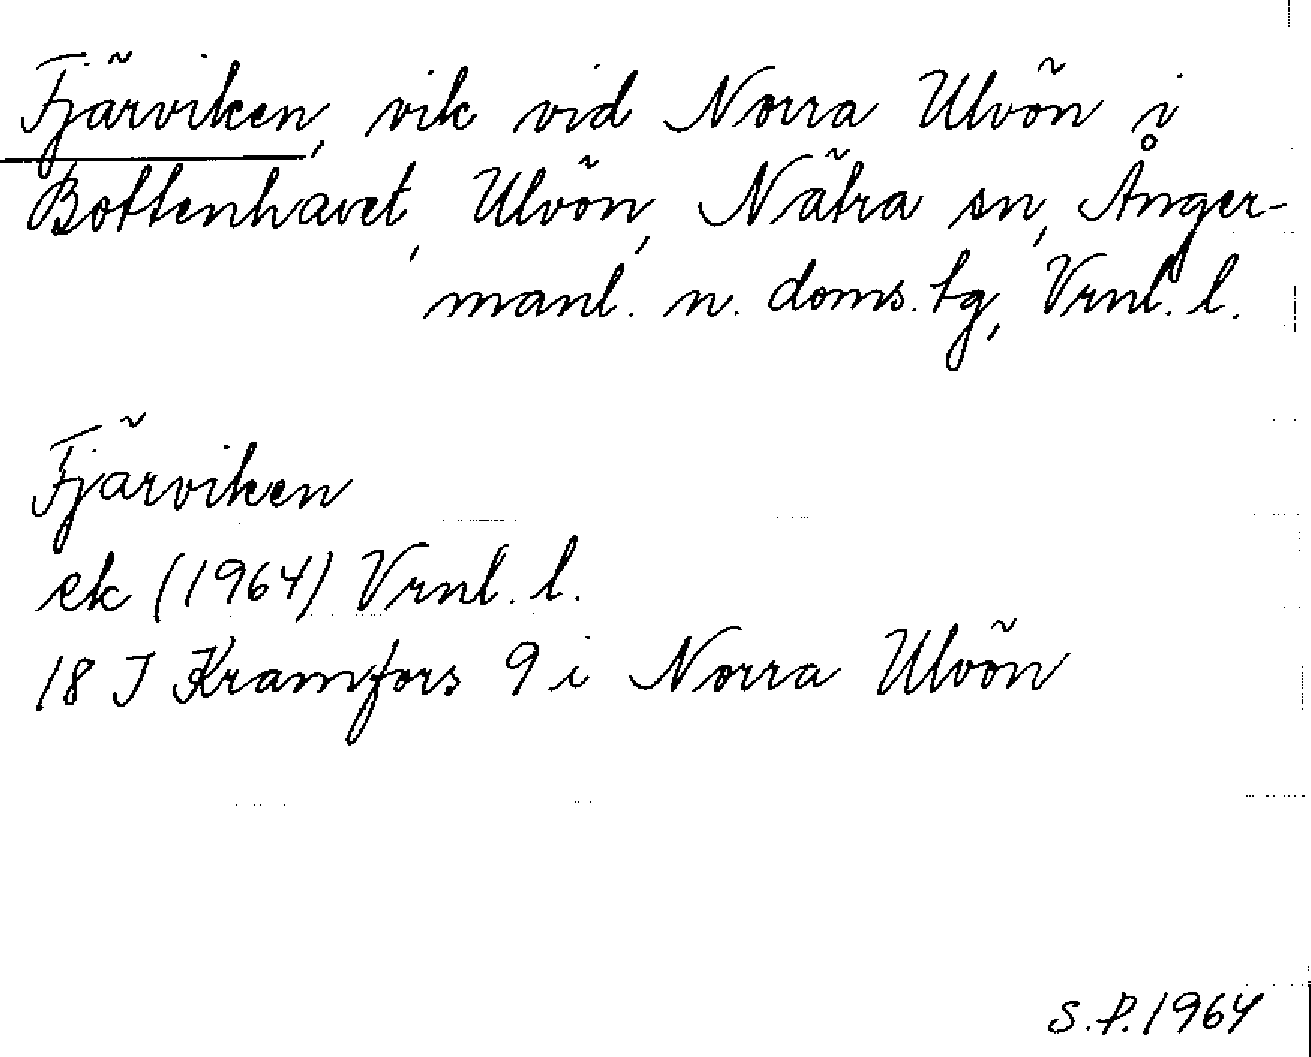 Fjärviken, vik vid Norra Ulvön i
Bottenhavet, Ulvön, Nätra sn, Ånger-
manl. n. doms. tg, Vrnl. l.
Fjärviken
ek (1964) Vrnl. l.
18 J Kramfors 9 i Norra Ulvön
S.P. 1964